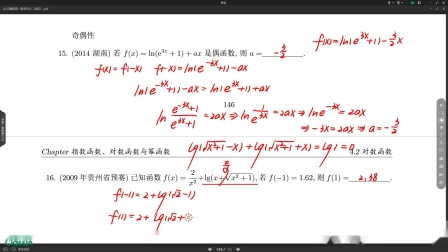 奇偶性
15. (2014 湖南) 若 f(x) = ln(e^{3x} + 1) + ax 是偶函数, 则 a = -3/2
f(x) = ln(e^{3x}+1) - 3/2 x
f(x) = f(-x)  f(-x) = ln(e^{-3x}+1) - ax
ln(e^{-3x}+1) - ax = ln(e^{3x}+1) + ax
146
ln (e^{-3x}+1)/(e^{3x}+1) = 2ax ⇒ ln 1/e^{3x} = 2ax ⇒ ln e^{-3x} = 2ax
⇒ -3x = 2ax ⇒ a = -3/2
lg(√(x²+1) - x) + lg(√(x²+1) + x) = lg1 = 0
Chapter 指数函数、对数函数与幂函数
.2 对数函数
16. (2009 年贵州省预赛) 已知函数 f(x) = 2/x⁴ + lg(x + √(x² + 1)), 若 f(-1) = 1.62, 则 f(1) = 2.38.
f(-1) = 2 + lg(√2 - 1)
f(1) = 2 + lg(√2 +